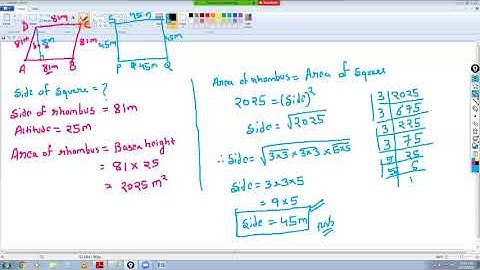 D 81m C
81m 81m
25m
A 81m B
S 45m
45m 45m
P 45m Q
Side of Square = ?
Side of rhombus = 81m
Altitude = 25m
Area of rhombus = Base x height
= 81 x 25
= 2025 m²
Area of rhombus = Area of Square
2025 = (Side)²
Side = √2025
∴ Side = √3x3 x 3x3 x 5x5
Side = 3x3x5
= 9x5
Side = 45m
3 2025
3 675
3 225
3 75
5 25
5 5
1